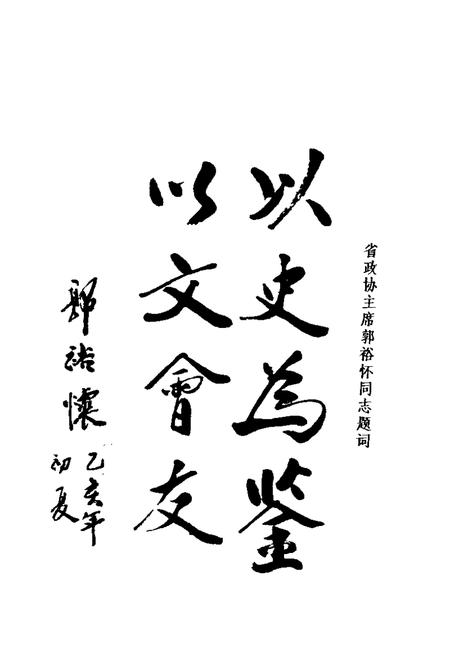 省政协主席郭裕怀同志题词
以史为鉴
以文會友
郭裕懷
乙亥年
初夏